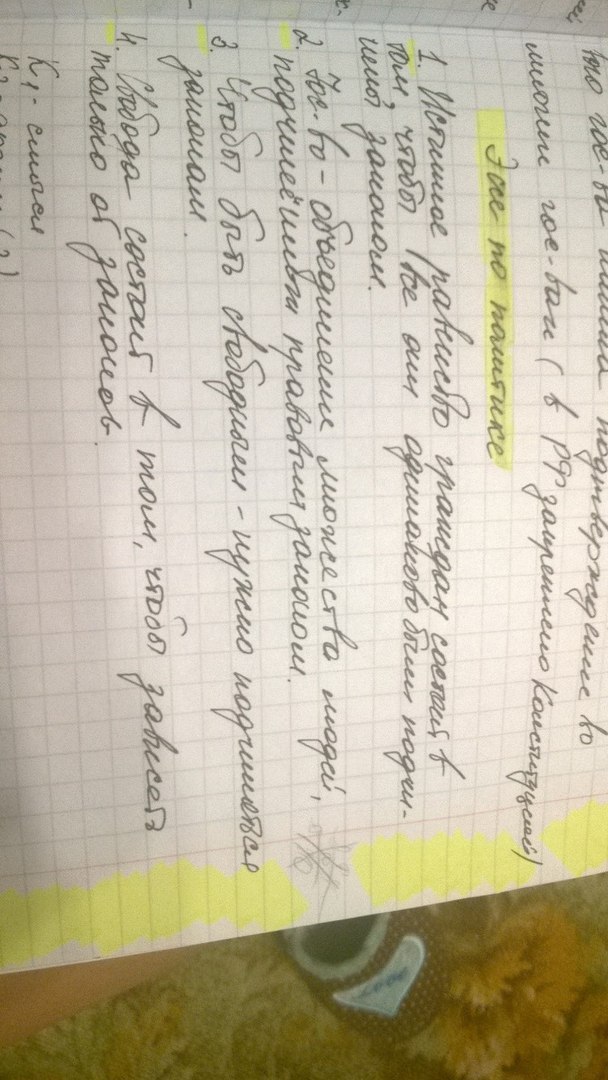 подтверждение во
многих гос-вах (в РФ закреплено Конституцией)
Эссе по политике
1. Истинное равенство граждан состоит в
том, чтобы все они одинаково были подчи-
нены законам.
2. Гос-во - объединение множества людей,
подчинённых правовым законам.
3. Чтобы быть свободным - нужно подчиняться
законам.
4. Свобода состоит в том, чтобы зависеть
только от законов.
К1 - смысл